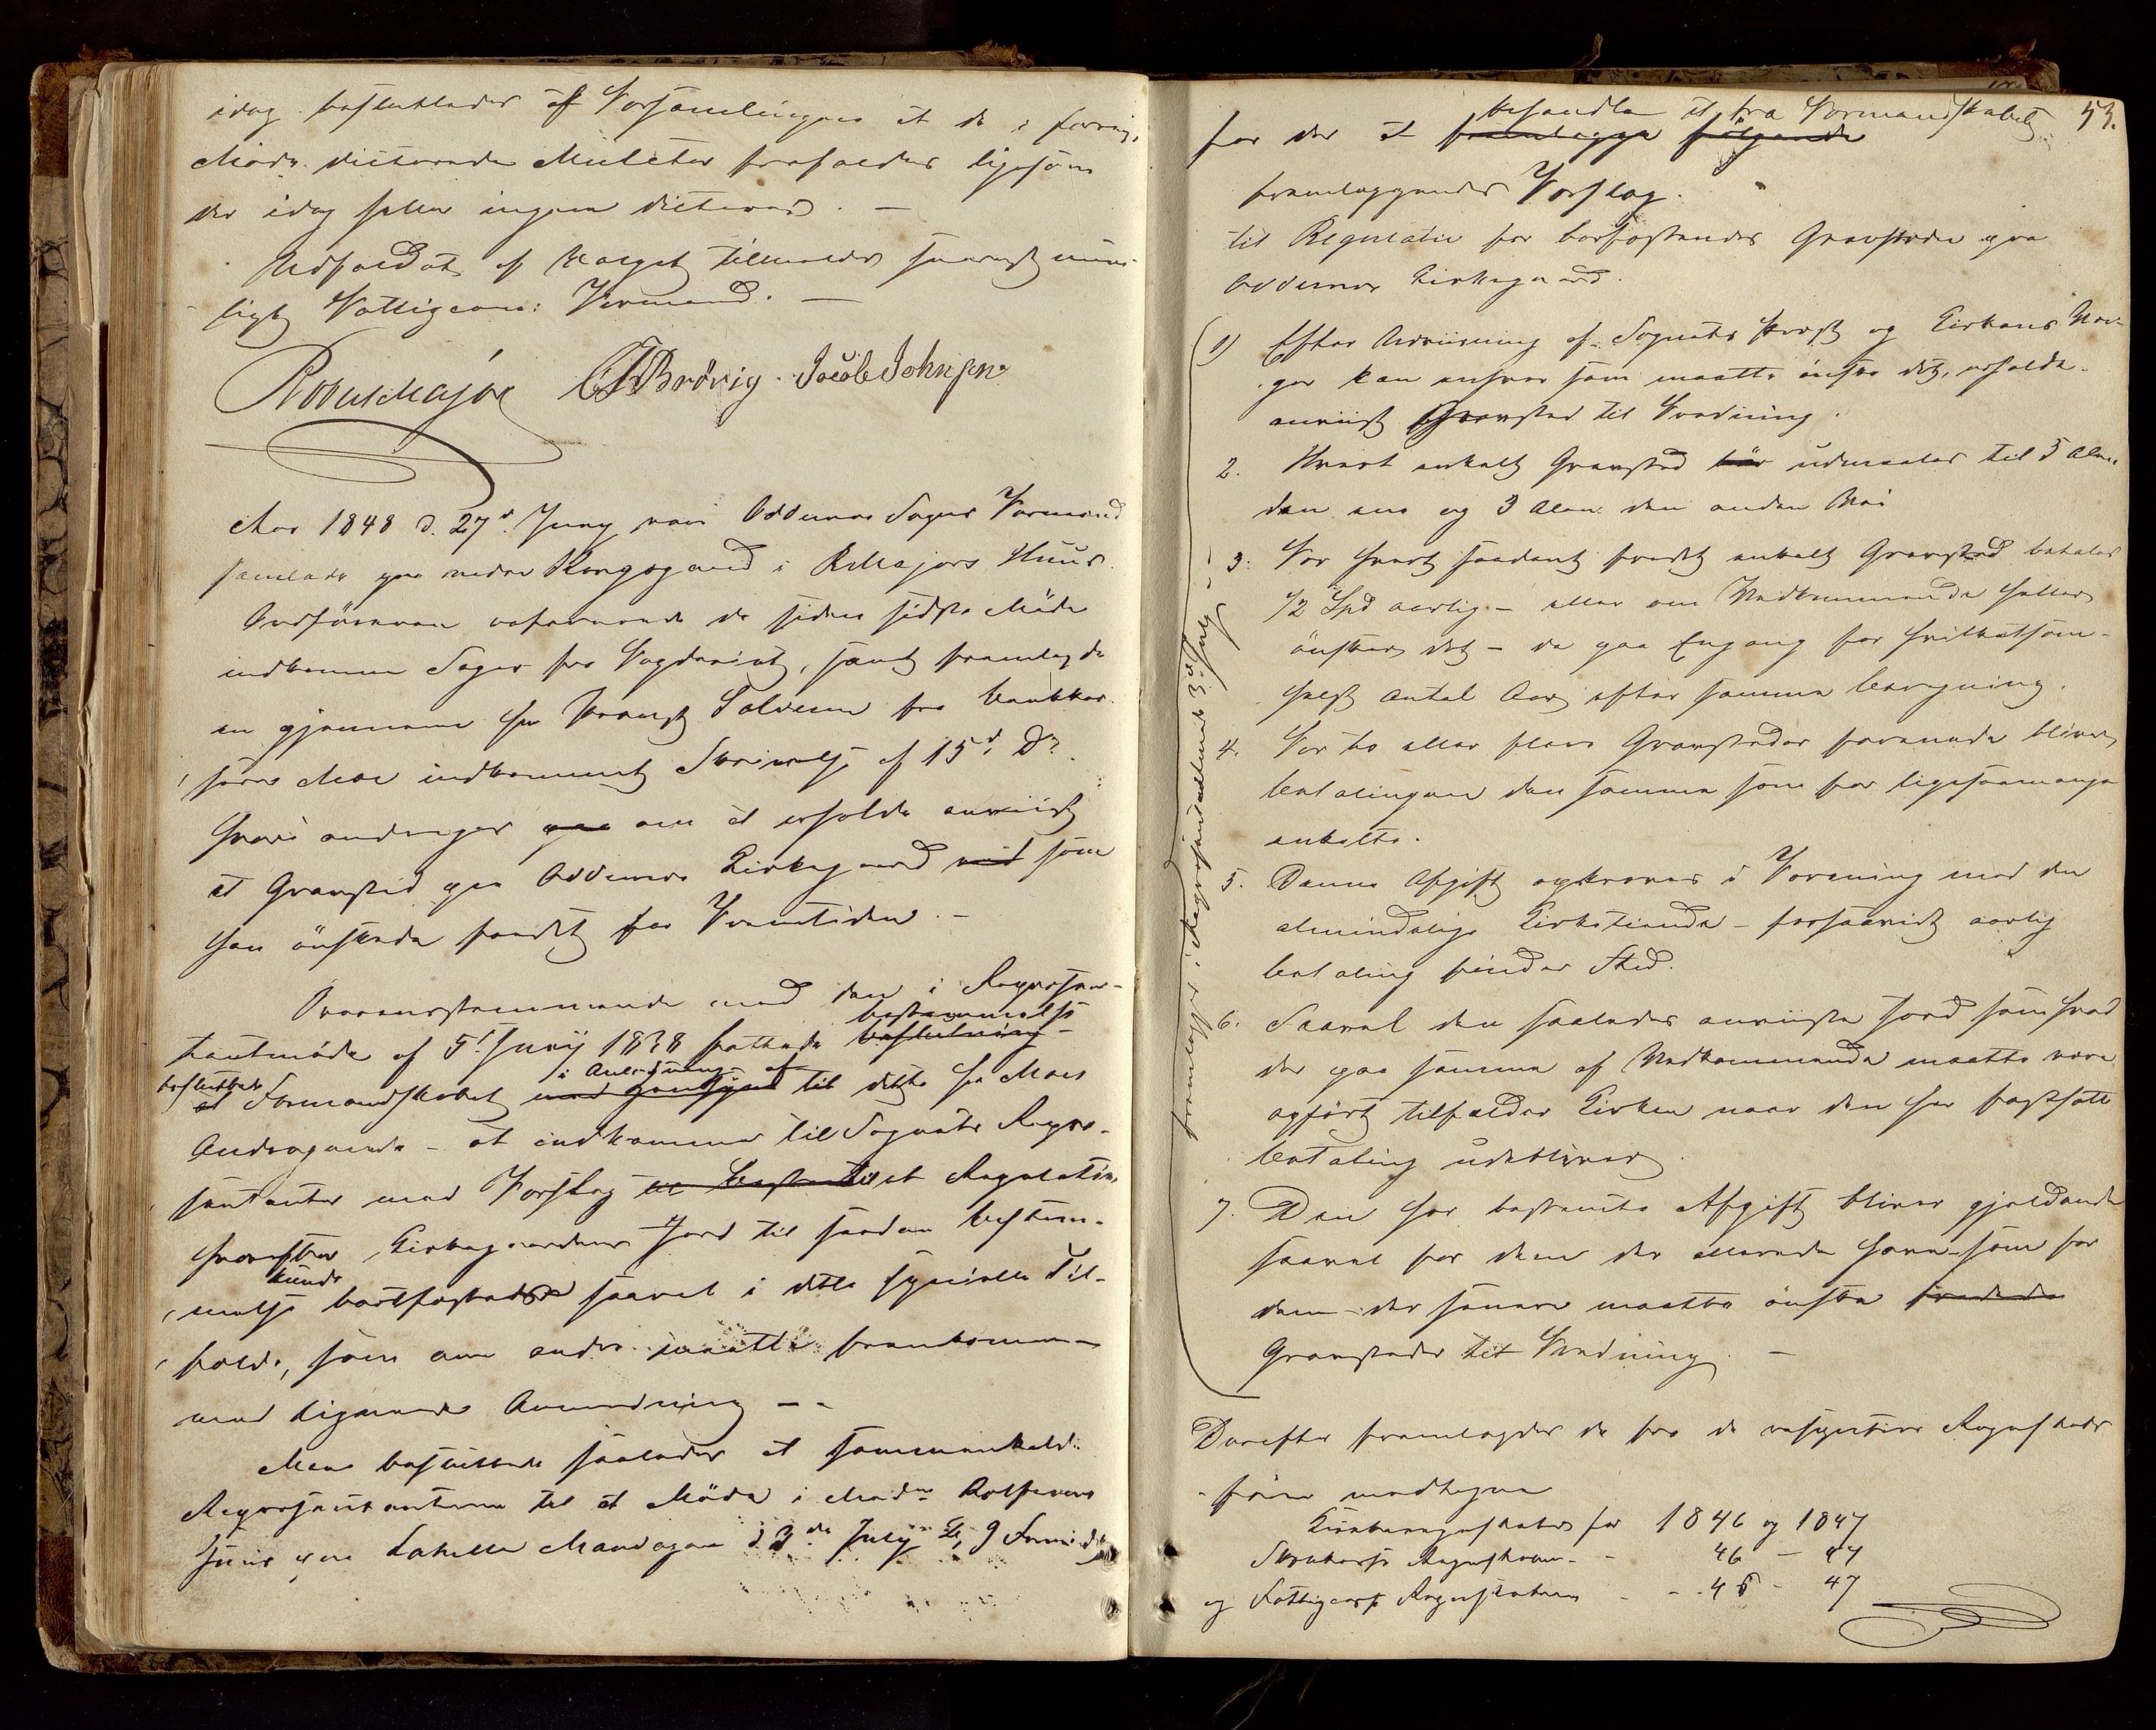 idag besluttedes af Forsamlingen at de i forrige
Møde dicterede Mulcter frafaldes ligesom
der idag heller ingen dicteres. —
Udfaldet af Valget tilmeldes snarest mue-
ligt Fattigcom: Formand. —
Robert Major CTBrøvig. Jacob Johnsen
Aar 1848 d. 27de Juny var Oddernes Sogns Formænd
samlede paa nedre Kongsgaard i RMajors Huus.
Ordføreren refererede de siden sidste Møde
indkomne Sager fra Fogderiet, samt fremlagde
en gjennem Hr Provst Salvesen fra
fører Moe indkommet Skrivelse af 15de Ds
hvori andrages paa om at erholde anviist
et Gravsted paa Oddernes Kirkegaard ved som
han ønskede fredet for Fremtiden. —
Overensstemmende med den i Repræsen-
bestemmelse
tantmøde af 5t Juny 1838 fattede beslutning —
besluttede i Anledning af
at Formandskabet med Hensyn til dette Hr Moes
Andragende — at indkomme til Sognets Repræ-
sentanter med Forslag til et Regulativ,
hvorefter Kirkegaardens Jord til saadan bestem-
kunde
melse bortfæstes saavel i dette specielle Til-
fælde, som om andre maatte fremkomme
med lignende Anmodning — -
Man besluttede saaledes at sammenkalde
Repræsentanterne til et Møde i Mad. Rolfsens
Huus paa Lahelle Mandagen d 3de July Kl, 9 Formidd
53.
behandle et fra Formandskabet
for der at fremlægge følgende
fremlæggendes Forslag.
til Regulativ for bortfæstendes Gravsteder paa
Oddernes Kirkegaard.
1) Efter Anviisning af Sognets Præst og Kirkens Vær-
ger kan enhver som maatte ønske det, erholde
anviist Gravsted til Fredning.
2. Hvert enkelt Gravsted bør udmaales til 5 Alen
den ene og 3 Alen den anden Vei
3. For hvert saadant fredet enkelt Gravsted betales
1/2 Spd aarlig — eller om Vedkommende heller
ønsker det — da paa Engang for hvilketsom-
helst Antal Aar efter samme Beregning.
4. For to eller flere Gravsteder forenede bliver
Betalingen den samme som for ligesaamange
enkelte.
5. Denne Afgift opkræves i Forening med den
almindelige Kirketiende — forsaavidt aarlig
Betaling finder Sted.
6. Saavel den saaledes anviiste Jord som hvad
der paa samme af Vedkommende maatte være
opført tilfalder Kirken naar den her fastsatte
Betaling udebliver.
7. Den her bestemte Afgift bliver gjældende
saavel for dem der allerede have — som for
dem — der senere maatte ønske fredede
Gravsteder til Fredning. —
fremlægges i Repræsentantmøde 3de July —
Derefter fremlagdes de fra de respective Regnskabs-
fører modtagne
Kirkeregnskaber for 1846 og 1847
Skolekasse Regnskaber - - 46 — 47
og Fattigcasse Regnskaber - - 46 - 47